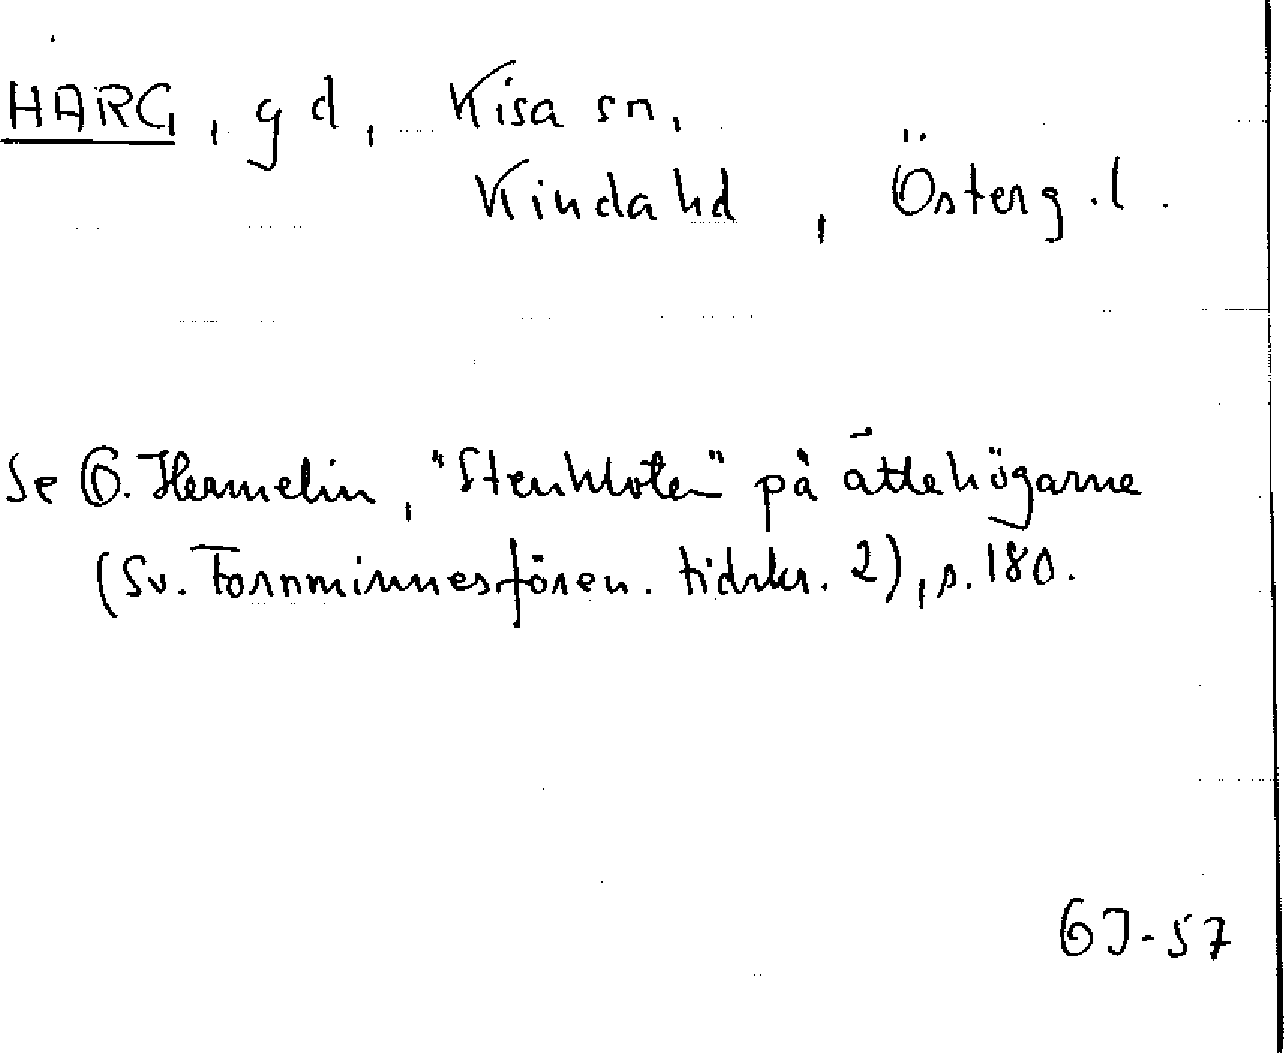 HARG, gd, Kisa sn,
Kinda hd, Österg.l.
Se O. Hermelin, "Stenkloten" på ättehögarne
(Sv. Fornminnesfören. tidskr. 2), s. 180.
GJ-57